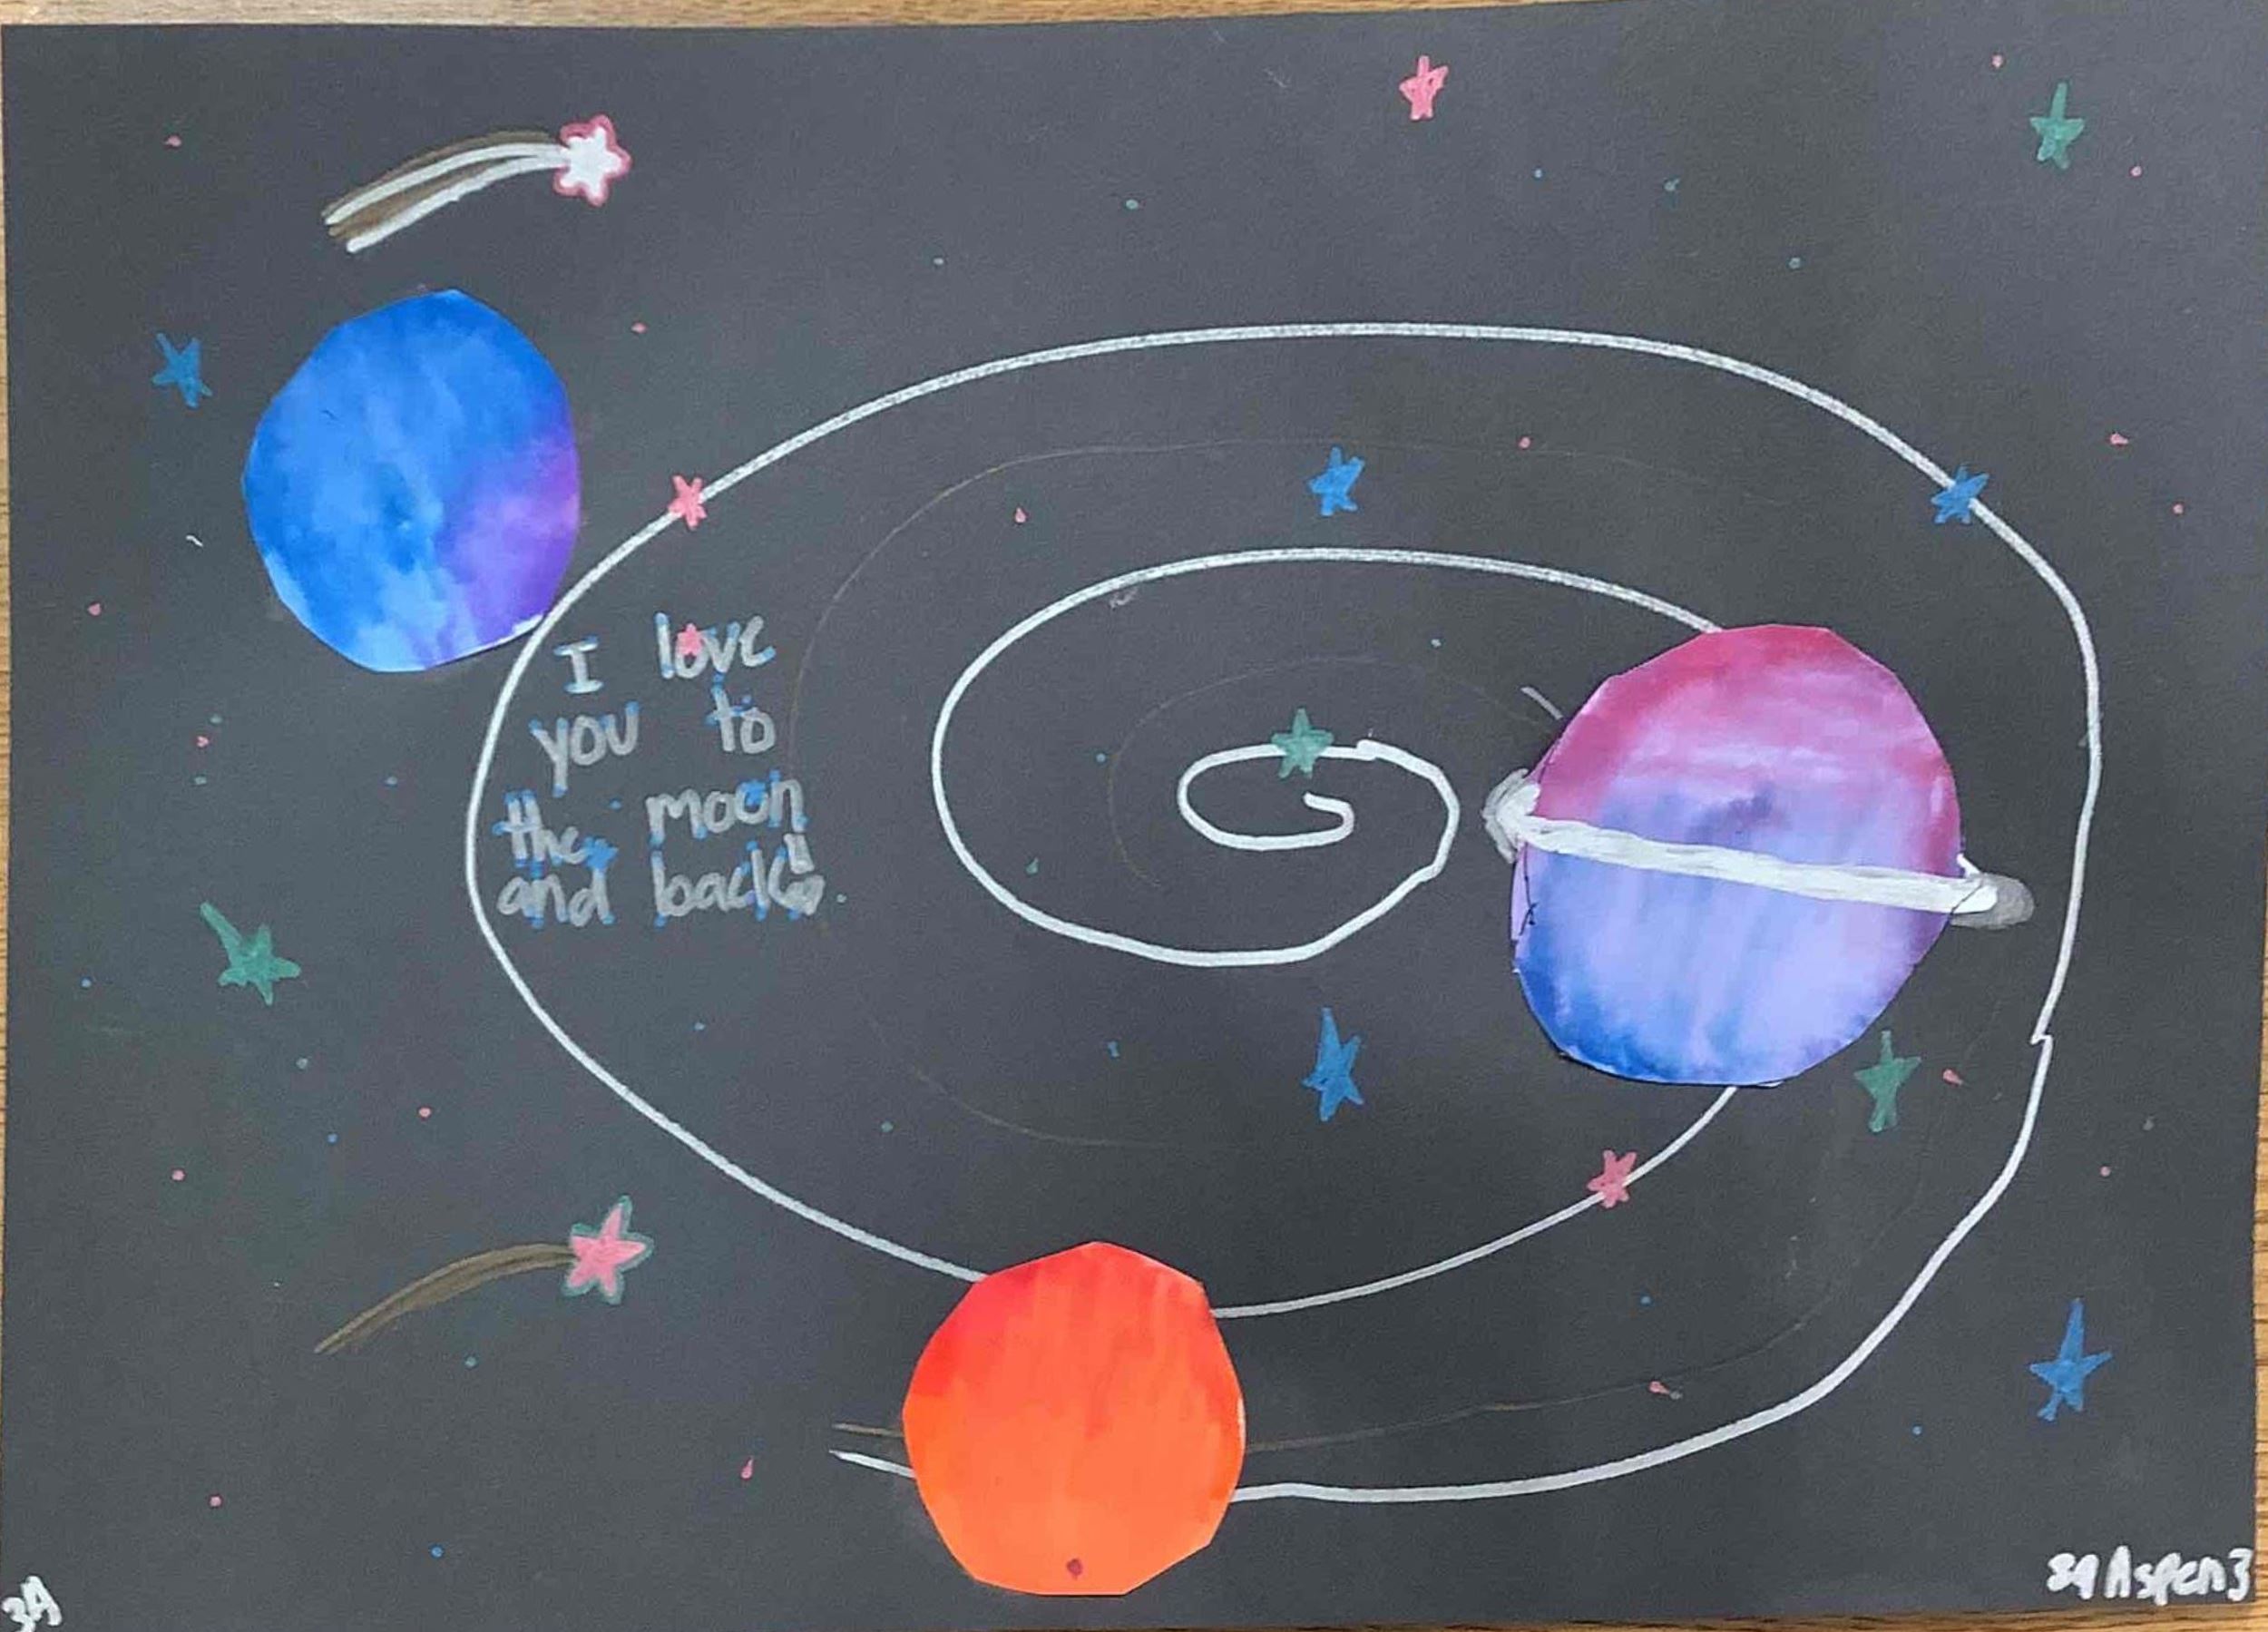 I love
you to
the moon
and back!!
39
39 Aspen 3